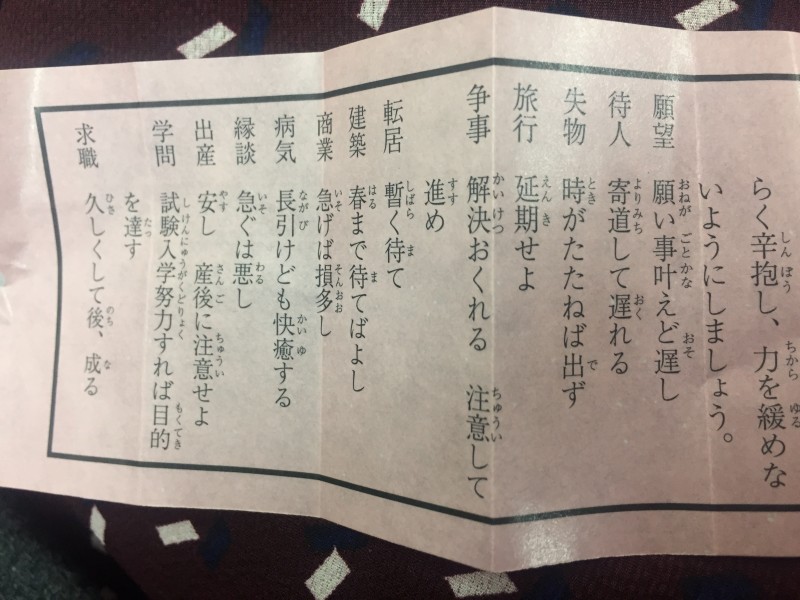 らく辛抱し、力を緩めな
いようにしましょう。
願望 願い事叶えど遅し
待人 寄道して遅れる
失物 時がたたねば出ず
旅行 延期せよ
争事 解決おくれる 注意して
進め
転居 暫く待て
建築 春まで待てばよし
商業 急げば損多し
病気 長引けども快癒する
縁談 急ぐは悪し
出産 安し 産後に注意せよ
学問 試験入学努力すれば目的
を達す
求職 久しくして後、成る